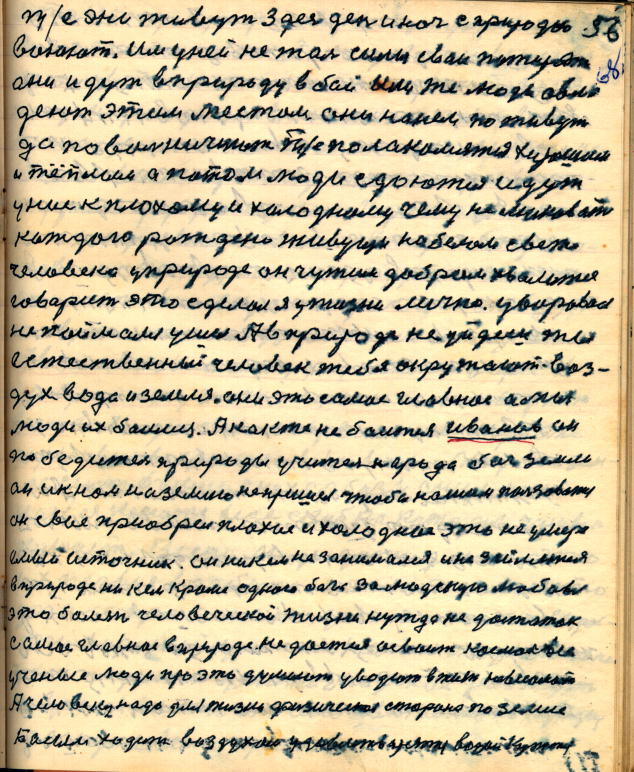 56
68
они живут з дея ден и ноч с природы
воюют. Им у ней не жал силы свои
они идут в природу в бой Или же люди овла
деют этим местом они на нем поживут
да полакомятся хорошим
и тёплым а потом люди сдаются идут
у них к плохому и холодному чему не миновать
каждого рождено живущи на белом свете
человека у природе он чужим добрым хвалится
говарит это сделал я у жизни лично. уваровал
не поймали ушел А в природе не уйдеш ты
естественный человек тебя окружают воз-
дух вода и земля. они это самое главное а
люди их баялис. А как же не боится Иванов он
победител природы учител народа бог земли
он и к нам на землю не пришел чтобы нашим ползоватся
он свае приобрел плохое и холодное это не умере
емый источник. он никем не занимался и не займется
в природе ни кем кроме одного бога за людскую любов
это болезн человеческой жизни нужда не достаток
самое главное в природе не дается освоит космос все
ученые люди про это думают уводют в жизн
А человеку надо для жизни физическая сторона по земле
Басым ходит воздухом водой